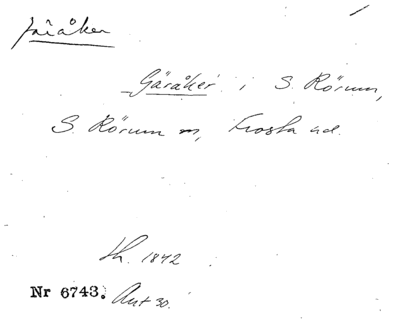 Gäråker
Gäråker i S. Rörum,
S. Rörum sn, Frosta hd.
1842
Nr 6743. Ant 30.